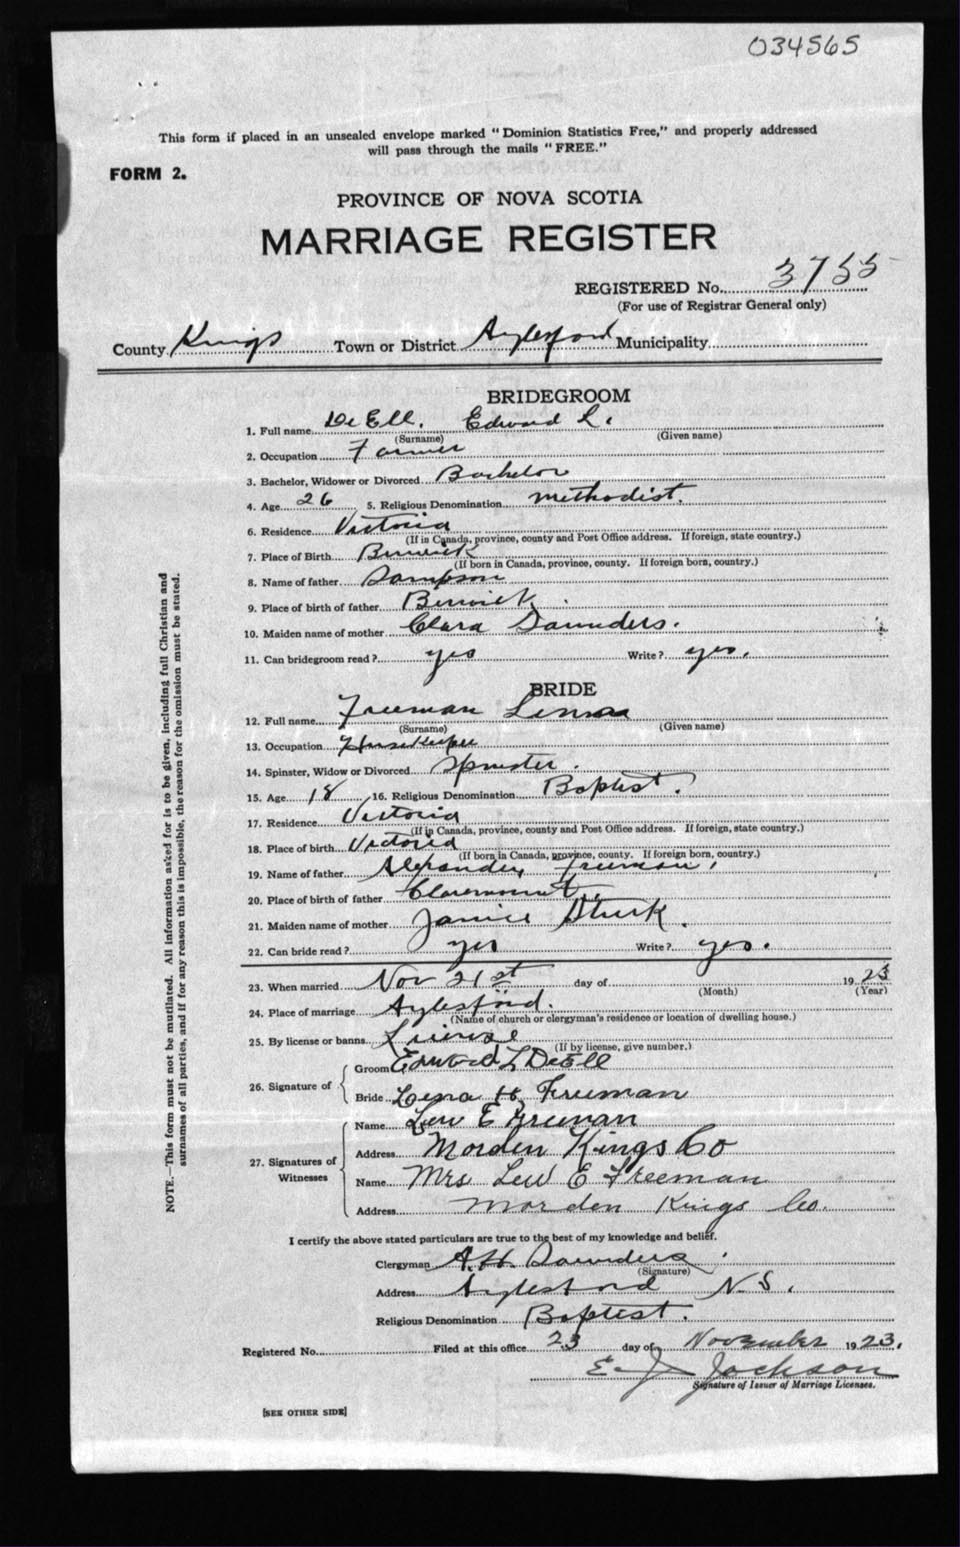 034565
This form if placed in an unsealed envelope marked "Dominion Statistics Free," and properly addressed
will pass through the mails "FREE."
FORM 2.
PROVINCE OF NOVA SCOTIA
MARRIAGE REGISTER
REGISTERED No. 3755
(For use of Registrar General only)
County Kings Town or District Aylesford Municipality
BRIDEGROOM
1. Full name DeEll. Edward L.
(Surname) (Given name)
2. Occupation Farmer
3. Bachelor, Widower or Divorced Bachelor
4. Age 26 5. Religious Denomination methodist.
6. Residence Victoria
(If in Canada, province, county and Post Office address. If foreign, state country.)
7. Place of Birth Berwick
(If born in Canada, province, county. If foreign born, country.)
8. Name of father Sampson
9. Place of birth of father Berwick
10. Maiden name of mother Clara Saunders.
11. Can bridegroom read? yes Write? yes.
BRIDE
12. Full name Freeman Lena
(Surname) (Given name)
13. Occupation Housekeeper
14. Spinster, Widow or Divorced Spinster.
15. Age 18 16. Religious Denomination Baptist.
17. Residence Victoria
(If in Canada, province, county and Post Office address. If foreign, state country.)
18. Place of birth Victoria
(If born in Canada, province, county. If foreign born, country.)
19. Name of father Alexander Freeman,
20. Place of birth of father Claremount.
21. Maiden name of mother Janice Sturk.
22. Can bride read? yes Write? yes.
23. When married Nov 21st day of 1923
(Month) (Year)
24. Place of marriage Aylesford.
(Name of church or clergyman's residence or location of dwelling house.)
25. By license or banns License
(If by license, give number.)
26. Signature of
Groom Edward L DeEll
Bride Lena H Freeman
27. Signatures of Witnesses
Name Lew E Freeman
Address Morden Kings Co
Name Mrs Lew E Freeman
Address Morden Kings Co.
I certify the above stated particulars are true to the best of my knowledge and belief.
Clergyman A.H. Saunders
(Signature)
Address Aylesford N.S.
Religious Denomination Baptist.
Registered No. Filed at this office 23 day of November 1923.
E. J. Jackson
Signature of Issuer of Marriage Licenses.
[SEE OTHER SIDE]
NOTE.—This form must not be mutilated. All information asked for is to be given, including full Christian and
surnames of all parties, and if for any reason this is impossible, the reason for the omission must be stated.